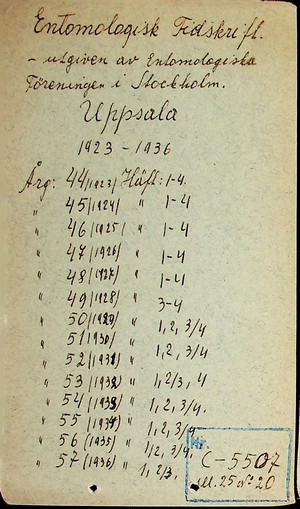 Entomologisk Tidskrift.
- utgiven av Entomologiska
Föreningen i Stockholm.
Uppsala
1923 - 1936
Årg: 44 (1923) Häft: 1-4.
" 45 (1924) " 1-4
" 46 (1925) " 1-4
" 47 (1926) " 1-4
" 48 (1927) " 1-4
" 49 (1928) " 3-4
" 50 (1929) " 1, 2, 3/4
" 51 (1930) " 1, 2, 3/4
" 52 (1931) "
" 53 (1932) " 1, 2/3, 4
" 54 (1933) " 1, 2, 3/4.
" 55 (1934) " 1, 2, 3/4
" 56 (1935) " 1/2, 3/4.
" 57 (1936) " 1, 2/3.
Nr.
C-5507